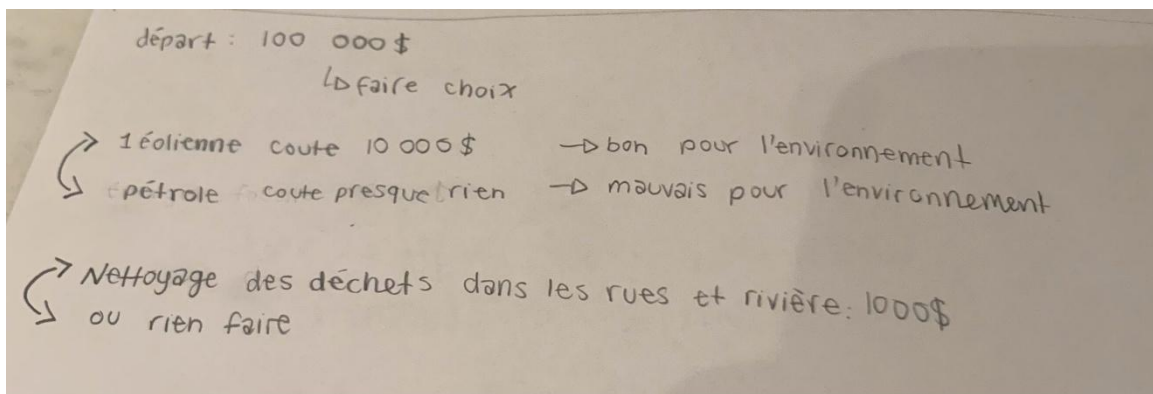 départ : 100 000$
↳ faire choix
1 éolienne coute 10 000$ → bon pour l'environnement
pétrole coute presque rien → mauvais pour l'environnement
Nettoyage des déchets dans les rues et rivière : 1000$
ou rien faire